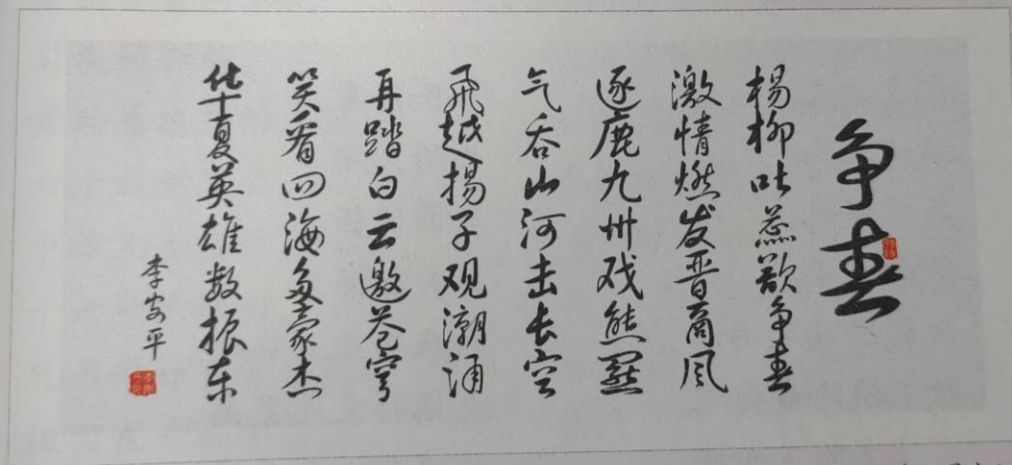 争春
杨柳吐蕊歡争春
激情燃发晋商风
逐鹿九州戏熊罴
气吞山河击长空
飛越揚子观潮涌
再踏白云邀苍穹
笑看四海多豪杰
华夏英雄数振东
李安平